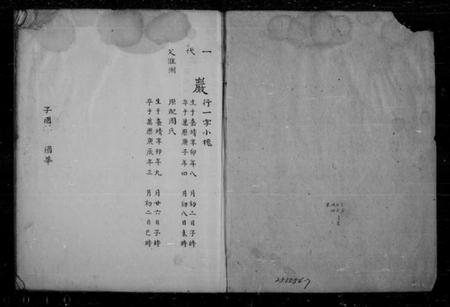 一代
父淮洲
巖 行一字小槐
生于嘉靖辛卯年八月初二日子時
卒于萬曆庚子年四月初八日未時
原配周氏
生于嘉靖辛卯年九月廿六日子時
卒于萬曆庚辰年三月初二日巳時
子國 國華